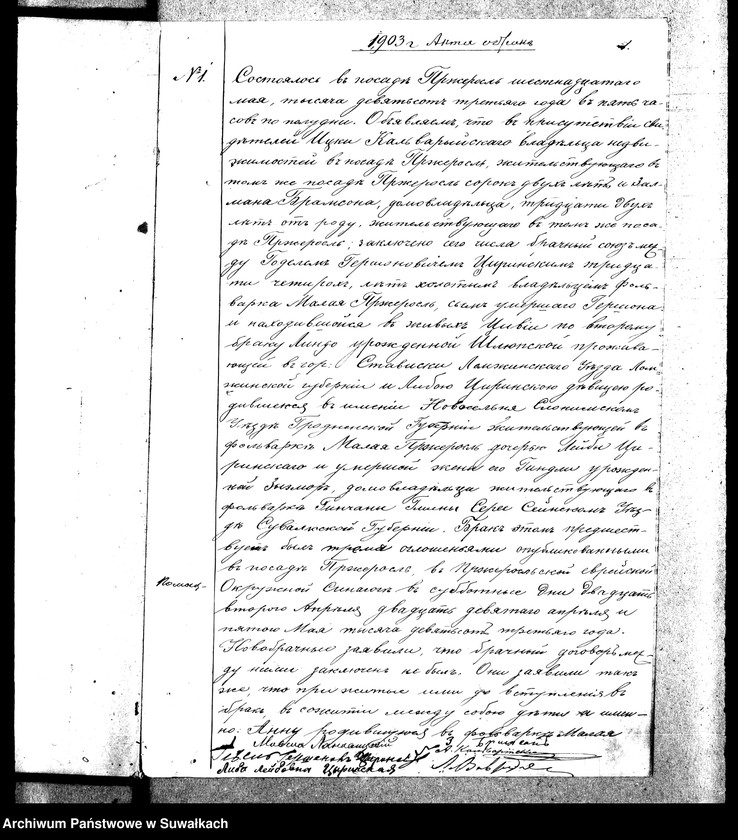 1903 г Акта о бракѣ
1.
№ 1.
Состоялось въ посадѣ Пржеросль шестнадцатаго
мая, тысяча девятьсотъ третьяго года въ пять ча-
совъ по полудни. Объявляемъ, что въ присутствіи сви-
дѣтелей Ицки Кальварыйскаго владѣльца недви-
жимостей въ посадѣ Пржеросль, жительствующаго въ
томъ же посадѣ Пржеросль сорокъ двухъ лѣтъ и Зал-
мана Брамсона, домовладѣльца, тридцати двухъ
лѣтъ отъ роду, жительствующаго въ томъ же поса-
дѣ Пржеросль; заключено сего числа брачный союзъ меж-
ду Годелемъ Гершоновичемъ Циринскимъ тридца-
ти четырехъ, лѣтъ холостымъ владѣльцемъ фоль-
варка Малая Пржеросль, сыномъ умершаго Гершона
и находившейся въ живыхъ Цивіи по второму
браку Линдо урожденной прожива-
ющей въ гор: Стависки Ломжинскаго Уѣзда Лом-
жинской губерніи и Либою Циринскою дѣвицею ро-
дившеюся въ имѣніи Новоселья Слонимскомъ
Уѣздѣ Гродненской Губерніи жительствующей въ
фольваркѣ Малая Пржеросль дочерью Лейбы Ци-
ринскаго и умершой жены его Гиндли урожден-
ной домовладѣльца жительствующаго въ
фольваркѣ Гмины Серее Сейнскомъ Уѣз-
дѣ Сувалкской Губерніи. Бракъ этотъ предшест-
вуетъ былъ тремя оглошеніями опубликованными
въ посадѣ Пржеросль, въ Пржерольской еврейской
Окружной Синагогѣ въ субботные дни двадцать
второго Апрѣля двадцать девятаго апрѣля и
пятого Мая тысяча девятьсотъ третьяго года.
Новобрачные заявили, что брачный договоръ меж-
ду ними заключенъ не былъ. Они заявили такъ
же, что прижитые ими до вступленія въ
бракъ въ сожитіи между собою дѣтей а имян-
но: Анну родившуюся въ фольваркѣ Малая
Либа Лейбовна Циринская
Archiwum Państwowe w Suwałkach